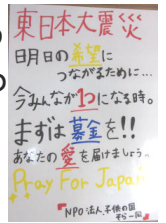 東日本大震災
明日の希望に
つながるために…
今みんなが1つになる時。
まずは募金を!!
あなたの愛を届けましょう。
Pray For Japan
NPO法人 子供の国